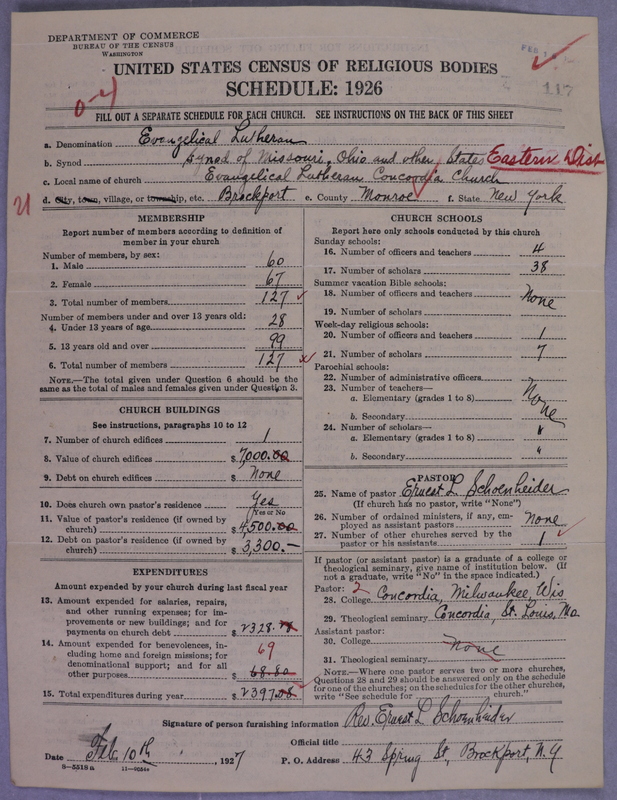 DEPARTMENT OF COMMERCE
BUREAU OF THE CENSUS
WASHINGTON
FEB
117
UNITED STATES CENSUS OF RELIGIOUS BODIES
SCHEDULE: 1926
FILL OUT A SEPARATE SCHEDULE FOR EACH CHURCH. SEE INSTRUCTIONS ON THE BACK OF THIS SHEET
a. Denomination Evangelical Lutheran
b. Synod Synod of Missouri, Ohio and other States Eastern Dist
c. Local name of church Evangelical Lutheran Concordia Church
21 d. City, town, village, or township, etc. Brockport e. County Monroe f. State New York
MEMBERSHIP
Report number of members according to definition of
member in your church
Number of members, by sex:
1. Male 60
2. Female 67
3. Total number of members 127
Number of members under and over 13 years old:
4. Under 13 years of age 28
5. 13 years old and over 99
6. Total number of members 127
NOTE.—The total given under Question 6 should be the
same as the total of males and females given under Question 3.
CHURCH BUILDINGS
See instructions, paragraphs 10 to 12
7. Number of church edifices 1
8. Value of church edifices $7,000.00
9. Debt on church edifices $ None
10. Does church own pastor's residence Yes
Yes or No
11. Value of pastor's residence (if owned by
church) $4,500.00
12. Debt on pastor's residence (if owned by
church) $3,300.—
EXPENDITURES
Amount expended by your church during last fiscal year
13. Amount expended for salaries, repairs,
and other running expenses; for im-
provements or new buildings; and for
payments on church debt $2328.
14. Amount expended for benevolences, in-
cluding home and foreign missions; for
denominational support; and for all
other purposes 69
$ 68.80
15. Total expenditures during year $2397.08
CHURCH SCHOOLS
Report here only schools conducted by this church
Sunday schools:
16. Number of officers and teachers 4
17. Number of scholars 38
Summer vacation Bible schools:
18. Number of officers and teachers None
19. Number of scholars
Week-day religious schools:
20. Number of officers and teachers 1
21. Number of scholars 7
Parochial schools:
22. Number of administrative officers
23. Number of teachers—
a. Elementary (grades 1 to 8) None
b. Secondary
24. Number of scholars—
a. Elementary (grades 1 to 8) "
b. Secondary "
PASTOR
25. Name of pastor Ernest L. Schoenheider
(If church has no pastor, write "None")
26. Number of ordained ministers, if any, em-
ployed as assistant pastors None
27. Number of other churches served by the
pastor or his assistants 1
If pastor (or assistant pastor) is a graduate of a college or
theological seminary, give name of institution below. (If
not a graduate, write "No" in the space indicated.)
Pastor: 2
28. College Concordia, Milwaukee, Wis
29. Theological seminary Concordia, St. Louis, Mo
Assistant pastor:
30. College None
31. Theological seminary
NOTE.—Where one pastor serves two or more churches,
Questions 28 and 29 should be answered only on the schedule
for one of the churches; on the schedules for the other churches,
write "See schedule for church."
Signature of person furnishing information Rev. Ernest L Schoenheider
Official title
Date Feb. 10th, 1927 P. O. Address 43 Spring St., Brockport, N.Y
8—5518a 11—9054